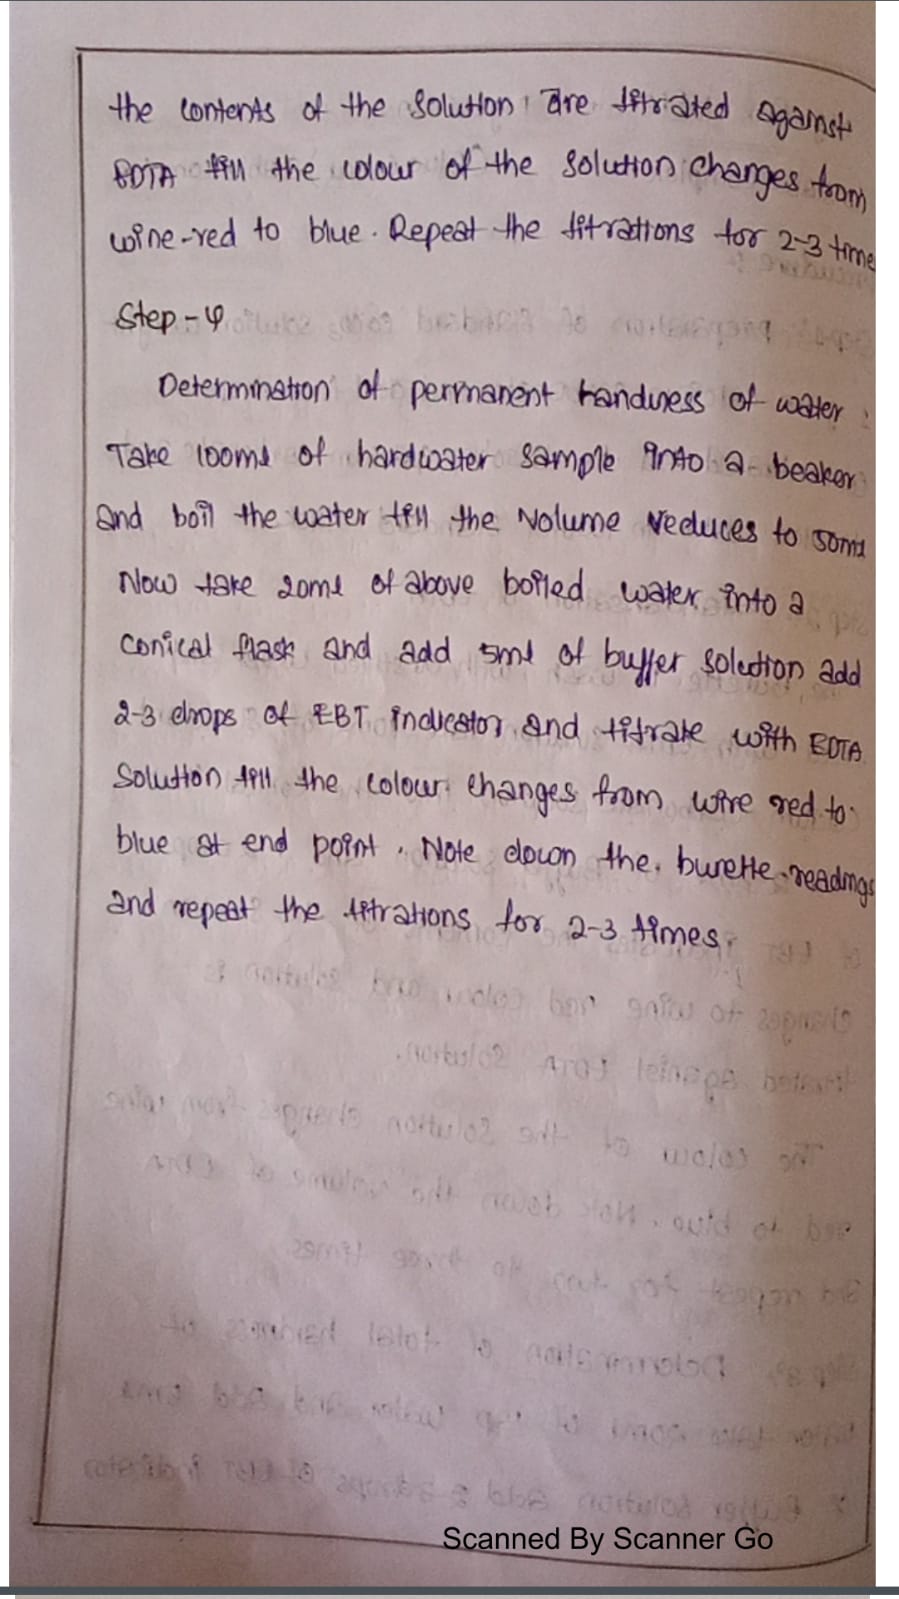 the contents of the solution are titrated against
EDTA till the colour of the solution changes from
wine-red to blue. Repeat the titrations for 2-3 time
Step-4
Determination of permanent handness of water
Take 100ml of hardwater sample into a beaker
and boil the water till the volume reduces to 50ml
Now take 20ml of above boiled water into a
conical flask and add 5ml of buffer solution add
2-3 drops of EBT indicator and titrate with EDTA
Solution till the colour changes from wire red to
blue at end point. Note down the burette-readings
and repeat the titrations for 2-3 times.
Scanned By Scanner Go